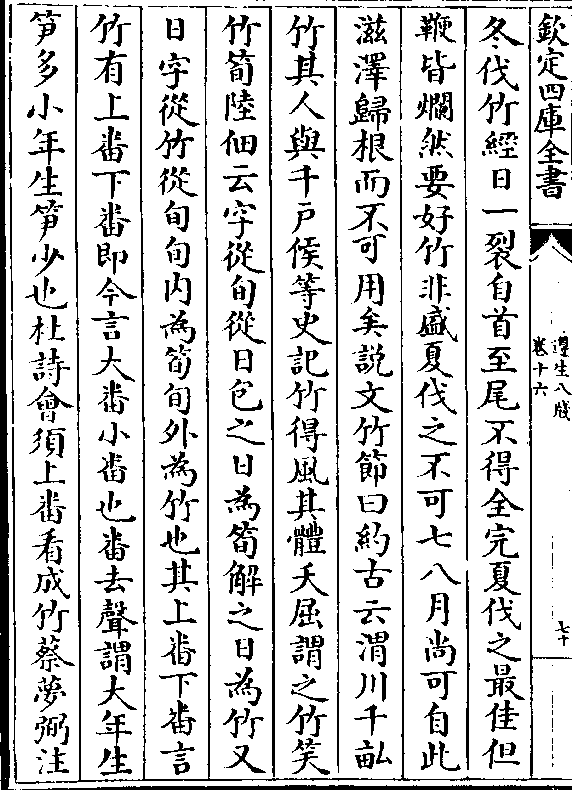 欽定四庫全書
遵生八牋
卷十六
七十
冬伐竹經日一裂自首至尾不得全完夏伐之最佳但
鞭皆爛然要好竹非盛夏伐之不可七八月尚可自此
滋澤歸根而不可用矣說文竹節曰約古云渭川千畝
竹其人與千戸侯等史記竹得風其體夭屈謂之竹笑
竹筍陸佃云字從旬從日包之日為筍解之日為竹又
日字從竹從旬旬内為筍旬外為竹也其上番下番言
竹有上番下番即今言大番小番也番去聲謂大年生
笋多小年生笋少也杜詩會須上番看成竹蔡夢弼注